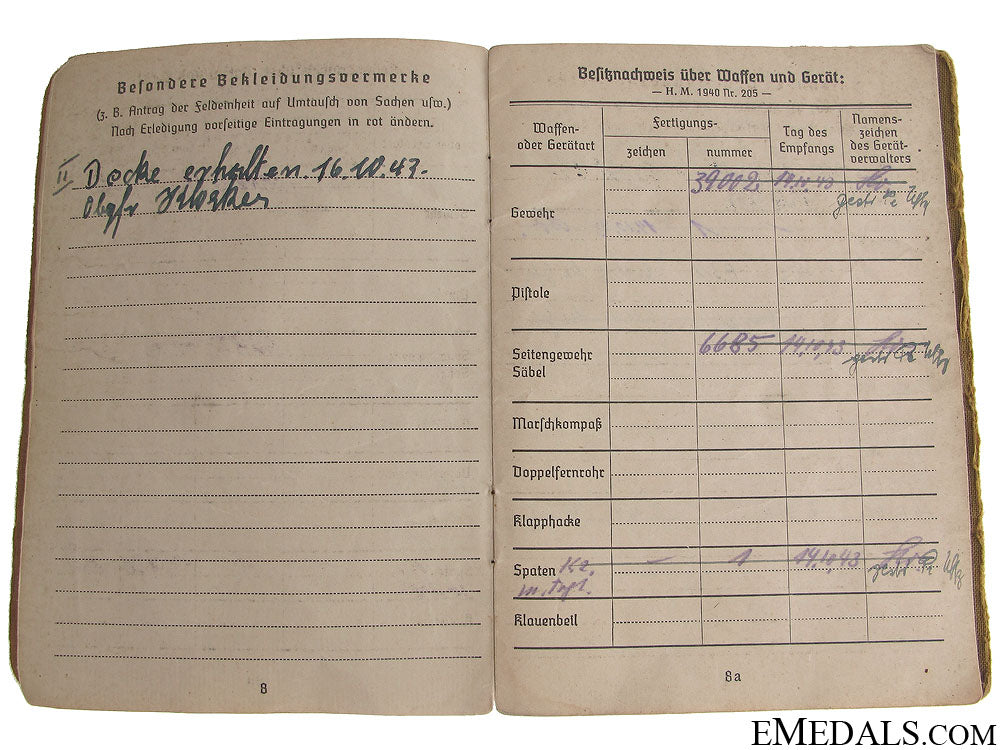 Besondere Bekleidungsvermerke
(z. B. Antrag der Feldeinheit auf Umtausch von Sachen usw.)
Nach Erledigung vorseitige Eintragungen in rot ändern.
II Decke erhalten 16.10.43.
Obgfr
8
Besitznachweis über Waffen und Gerät:
— H. M. 1940 Nr. 205 —
Waffen- oder Gerätart
Fertigungs-
zeichen
nummer
Tag des Empfangs
Namens-zeichen des Gerät-verwalters
39002 14.10.43
Gewehr
gestr Uffz
Pistole
6685 14.10.43
Seitengewehr
Säbel
gestr Uffz
Marschkompaß
Doppelfernrohr
Klapphacke
Spaten Kz. — 1 14.10.43
m. gestr Uffz
Klauenbeil
8a
EMEDALS.COM